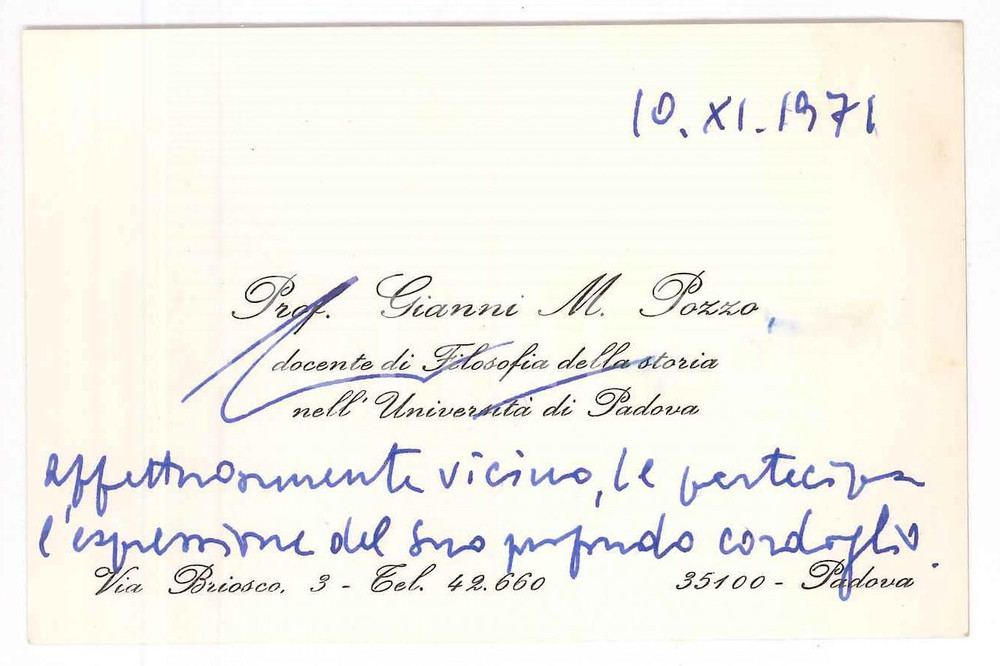 10. XI. 1971
Prof. Gianni M. Pozzo,
docente di Filosofia della storia
nell' Università di Padova
affettuosamente vicino, le partecipa
l'espressione del suo profondo cordoglio.
Via Briosco, 3 - Tel. 42.660 35100 - Padova